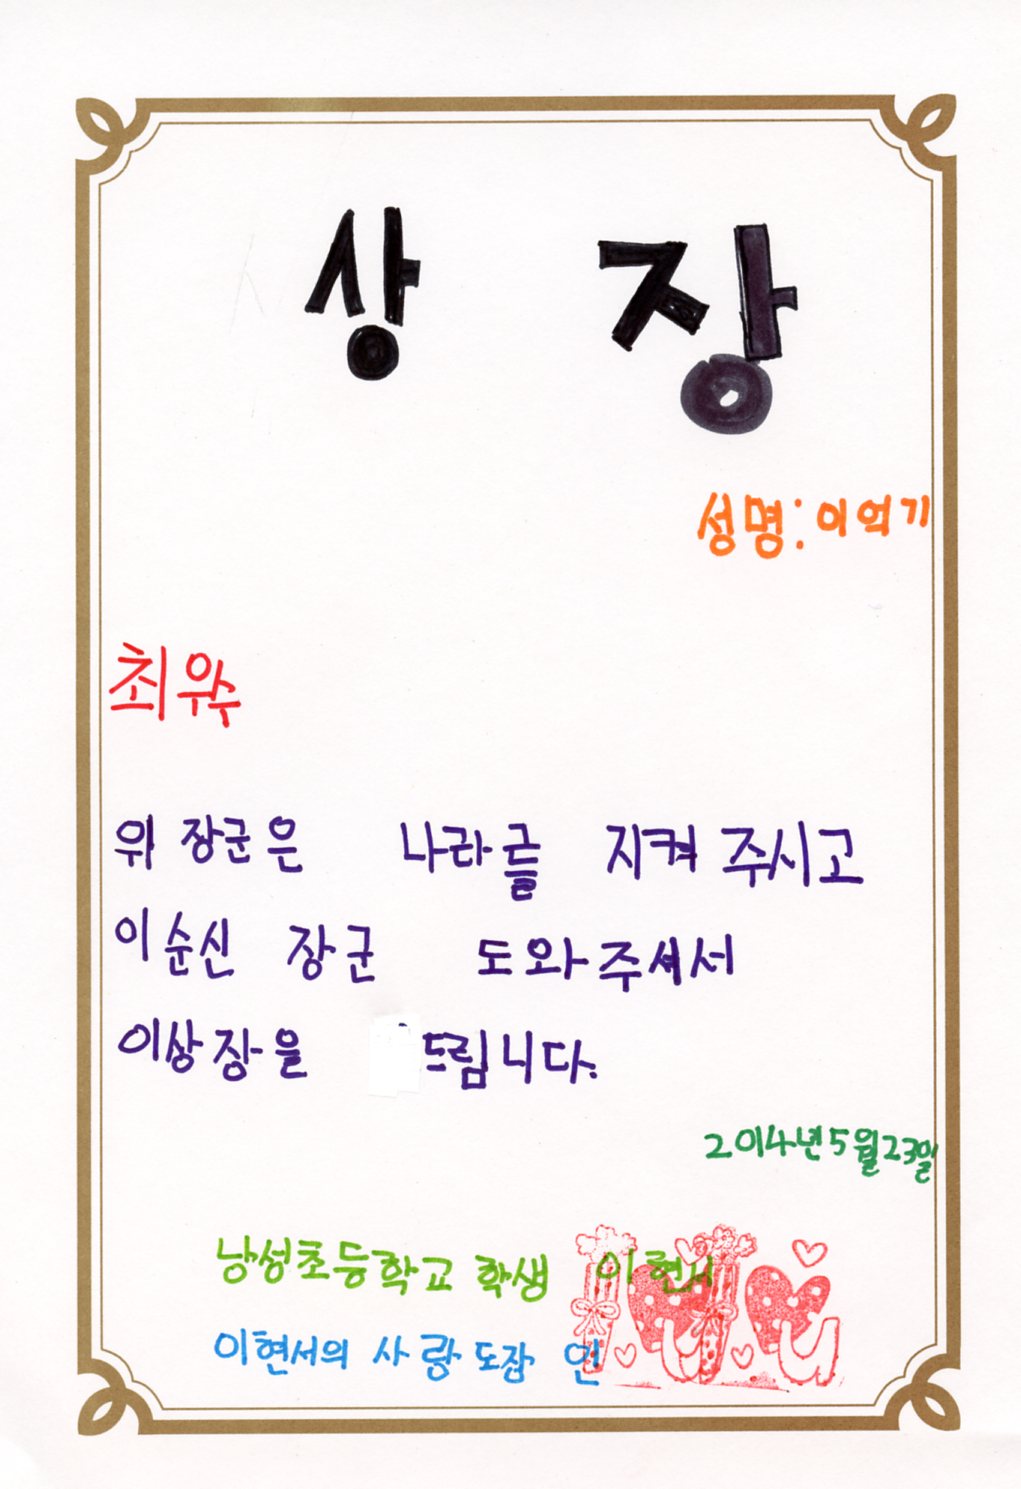 상 장
성명:이억기
최우수
위 장군은 나라를 지켜 주시고
이순신 장군 도와주셔서
이상장을 드립니다.
2014년5월23일
낭성초등학교 학생 이현서
이현서의 사랑도장 인